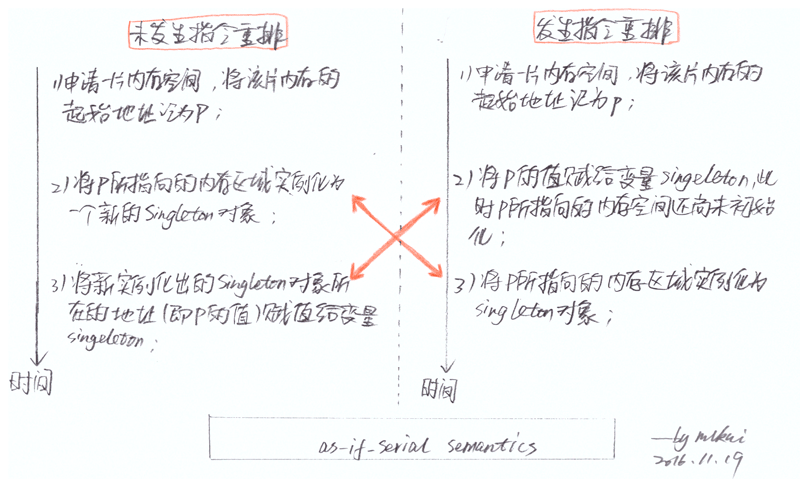 未发生指令重排
1)申请一片内存空间,将该片内存的
起始地址记为P;
2)将P所指向的内存区域实例化为
一个新的Singleton对象;
3)将新实例化出的Singleton对象所
在的地址(即P的值)赋值给变量
singeleton;
时间
发生指令重排
1)申请一片内存空间,将该片内存的
起始地址记为P;
2)将P的值赋给变量singeleton,此
时P所指向的内存空间还尚未初始
化;
3)将P所指向的内存区域实例化为
singleton对象;
时间
as-if-serial semantics
2016.11.19